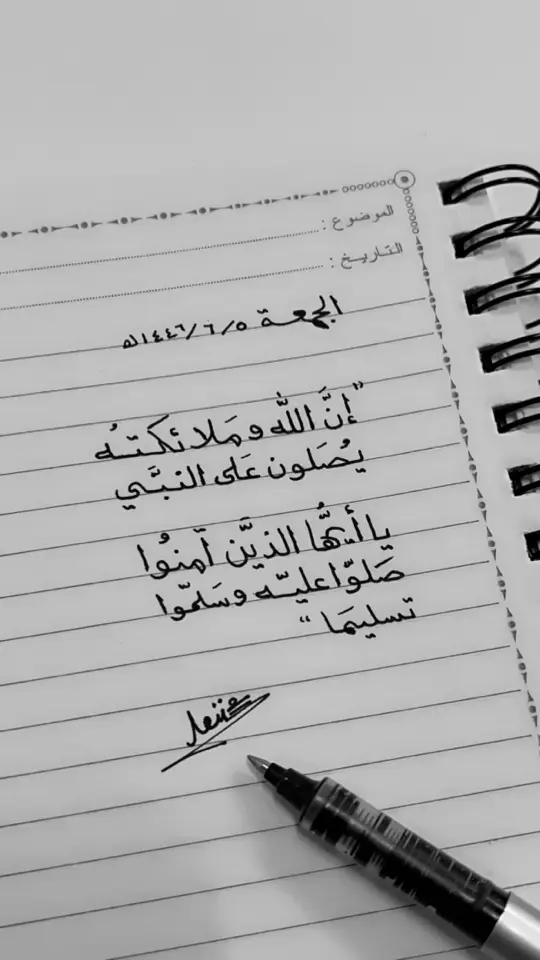 الموضوع :
التاريخ :
الجمعة ٥/٦/١٤٤٦هـ
"إنَّ الله ومَلائكتهُ
يُصَلون عَلى النبَّي
يا أيُّها الذيَّن آمنُوا
صَلوّا عليه وسَلمّوا
تسليمَا "